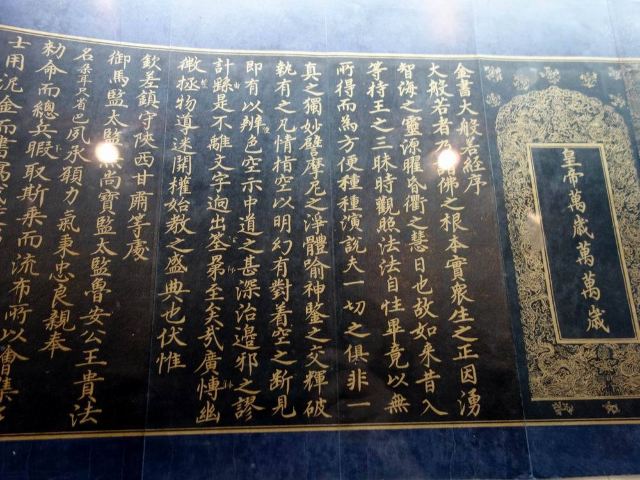 皇帝萬歲萬萬歲
金書大般若經序
大般若者乃諸佛之根本實衆生之正因湧
智海之靈源曜昏衢之慧日也故如来昔入
等持王之三昧時觀照法法自性畢竟以無
所得而為方便種種演說夫一切之俱非一
真之獨妙壁摩尼之淨體喻神鋻之交輝破
執有之凡情指空以明幻有對着空之断見
即有以辨色空示中道之甚深治邊邪之謬
計雖是不離文字迥出荃苐至矣哉廣慱幽
微極物導迷開權始教之盛典也伏惟
欽差鎮守陕西甘肅等處
御馬監太監尚寶監太監魯安公王貴法
名桒耳只省巴夙承願力氣秉忠良親奉
勑命而總兵暇取斯乘而流布所以會集
士用泥金而書寫